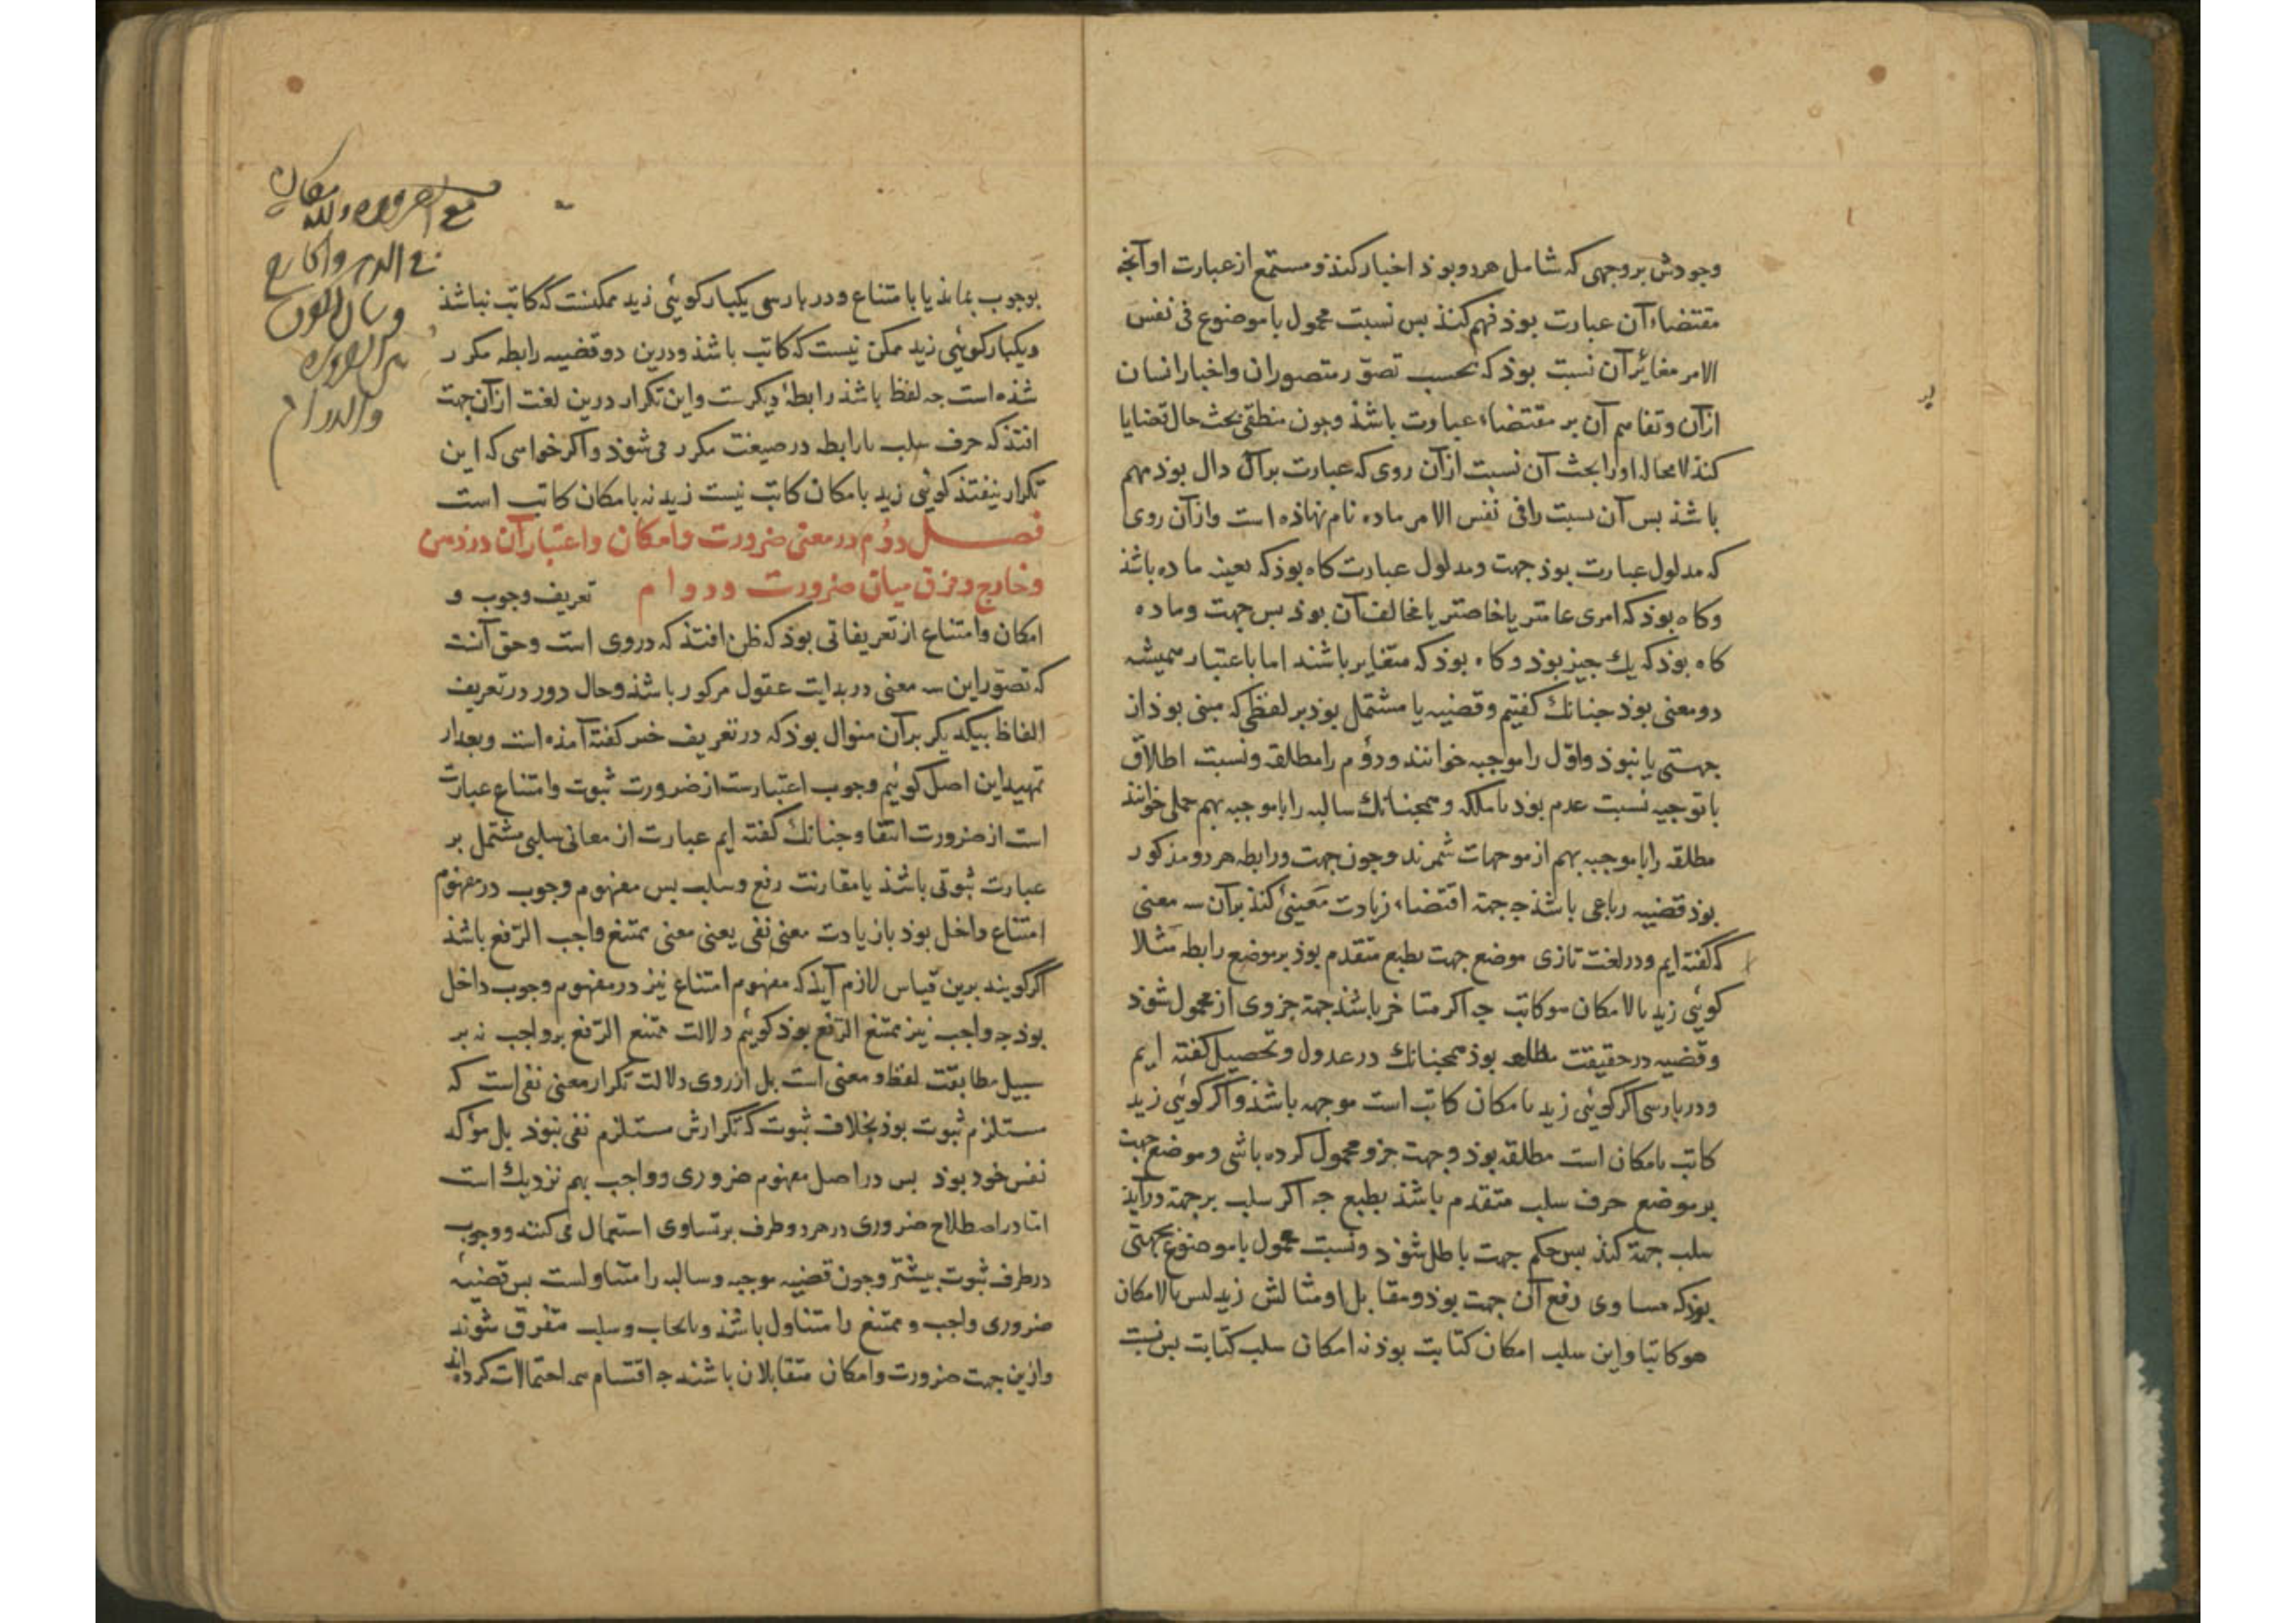 وجودش بر وجهی که شامل هر دو بوذ اخبار کنذ و مستمع از عبارت او آنچه
مقتضاء آن عبارت بوذ فهم کنذ بس نسبت محمول با موضوع فی نفس
الامر مغایر آن نسبت بوذ که بحسب تصوّر متصوران و اخبار انسان
ازآن و تفاهم آن بر مقتضاء عبارت باشذ وجون منطقی بحث حال قضایا
کنذ لامحاله اورا بحث آن نسبت ازآن روی که عبارت برآن دال بوذ مهم
باشذ بس آن نسبت را فی نفس الامر ماده نام نهاذه است وازآن روی
که مدلول عبارت بوذ جهت ومدلول عبارت کاه بوذ که بعینه ماده باشذ
وکاه بوذ که امری عامتر یا خاصتر یا مخالف آن بوذ بس جهت وماده
کاه بوذ که یك جیز بوذ وکاه بوذ که متغایر باشند اما باعتبار همیشه
دو معنی بوذ جنانك کفتیم وقضیه یا مشتمل بوذ بر لفظی که مبنی بوذ از
جهتی یا نبوذ واوّل را موجبه خوانند ودوُم را مطلقه ونسبت اطلاق
با توجیه نسبت عدم بوذ با ملکه وهمجنانك سالبه را با موجبه بهم حملی خوانند
مطلقه را با موجبه بهم از موجهات شمرند وجون جهت ورابطه هر دو مذکور
بوذ قضیه رباعی باشذ جه جهة اقتضاء زیادت معینیٔ کنذ برآن سه معنی
که کفته ایم ودر لغت تازی موضع جهت بطبع متقدم بوذ بر موضع رابطه مثلا
کوئی زید بالامکان هو کاتب جه اکر متاخر باشذ جهة جزوی از محمول شوذ
وقضیه درحقیقت مطلقه بوذ همجنانك در عدول وتحصیل کفته ایم
ودر بارسی اکر کوئی زید بامکان کاتب است موجهه باشذ واکر کوئی زید
کاتب بامکان است مطلقه بوذ وجهت جزو محمول کرده باشی وموضع جهت
بر موضع حرف سلب متقدم باشذ بطبع جه اکر سلب بر جهة درآید
سلب جهة کنذ بس حکم جهت باطل شوذ ونسبت محمول با موضوع بجهتی
بوذ که مساوی رفع آن جهت بوذ ومقابل او مثالش زید لیس بالامکان
هو کاتبا واین سلب امکان کتابت بوذ نه امکان سلب کتابت بس نسبت
بوجوب بماند یا بامتناع ودر بارسی یکبار کوئی زید ممکنست که کاتب نباشذ
ویکبار کوئی زید ممکن نیست که کاتب باشذ ودرین دو قضیه رابطه مکرر
شذه است جه لفظ باشذ رابطهٔ دیکرست واین تکرار درین لغت ازآن جهت
افتذ که حرف سلب با رابطه در صیغت مکرر می شوذ واکر خواهی که این
تکرار نیفتذ کوئی زید بامکان کاتب نیست زید نه بامکان کاتب است
فصل دوُم در معنی ضرورت وامکان واعتبار آن در ذهن
وخارج وفرق میان ضرورت ودوام تعریف وجوب و
امکان وامتناع از تعریفاتی بوذ که ظن افتذ که دروی است وحق آنست
که تصوّر این سه معنی در بدایت عقول مرکوز باشذ وحال دور در تعریف
الفاظ بیکدیکر برآن منوال بوذ که در تعریف خبر کفته آمذه است وبعد از
تمهید این اصل کوئیم وجوب اعتبارست از ضرورت ثبوت وامتناع عبارت
است از ضرورت انتفا وجنانك کفته ایم عبارت از معانی سلبی مشتمل بر
عبارت ثبوتی باشذ با مقارنت رفع وسلب بس مفهوم وجوب در مفهوم
امتناع داخل بوذ با زیادت معنی نفی یعنی معنی ممتنع واجب الرّفع باشذ
اکر کویند برین قیاس لازم آیذ که مفهوم امتناع نیز در مفهوم وجوب داخل
بوذ جه واجب نیز ممتنع الرّفع بوذ کوئیم دلالت ممتنع الرّفع بر واجب نه بر
سبیل مطابقت لفظ و معنی است بل از روی دلالت تکرار معنی نفی است که
مستلزم ثبوت بوذ بخلاف ثبوت که تکرارش مستلزم نفی نبوذ بل مؤکد
نفس خود بوذ بس در اصل مفهوم ضروری وواجب بهم نزدیك است
امّا در اصطلاح ضروری در هر دو طرف بر تساوی استعمال می کنند ووجوب
در طرف ثبوت بیشتر وجون قضیه موجبه وسالبه را متناولست بس قضیهٔ
ضروری واجب وممتنع را متناول باشذ وبایجاب وسلب متفرق شوند
وازین جهت ضرورت وامکان متقابلان باشند جه اقتسام همه احتمالات کرده اند